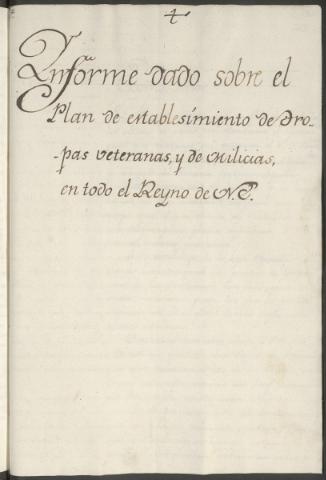 Ynforme dado sobre el
Plan de establesimiento de Tro-
-pas veteranas, y de Milicias,
en todo el Reyno de N. E.